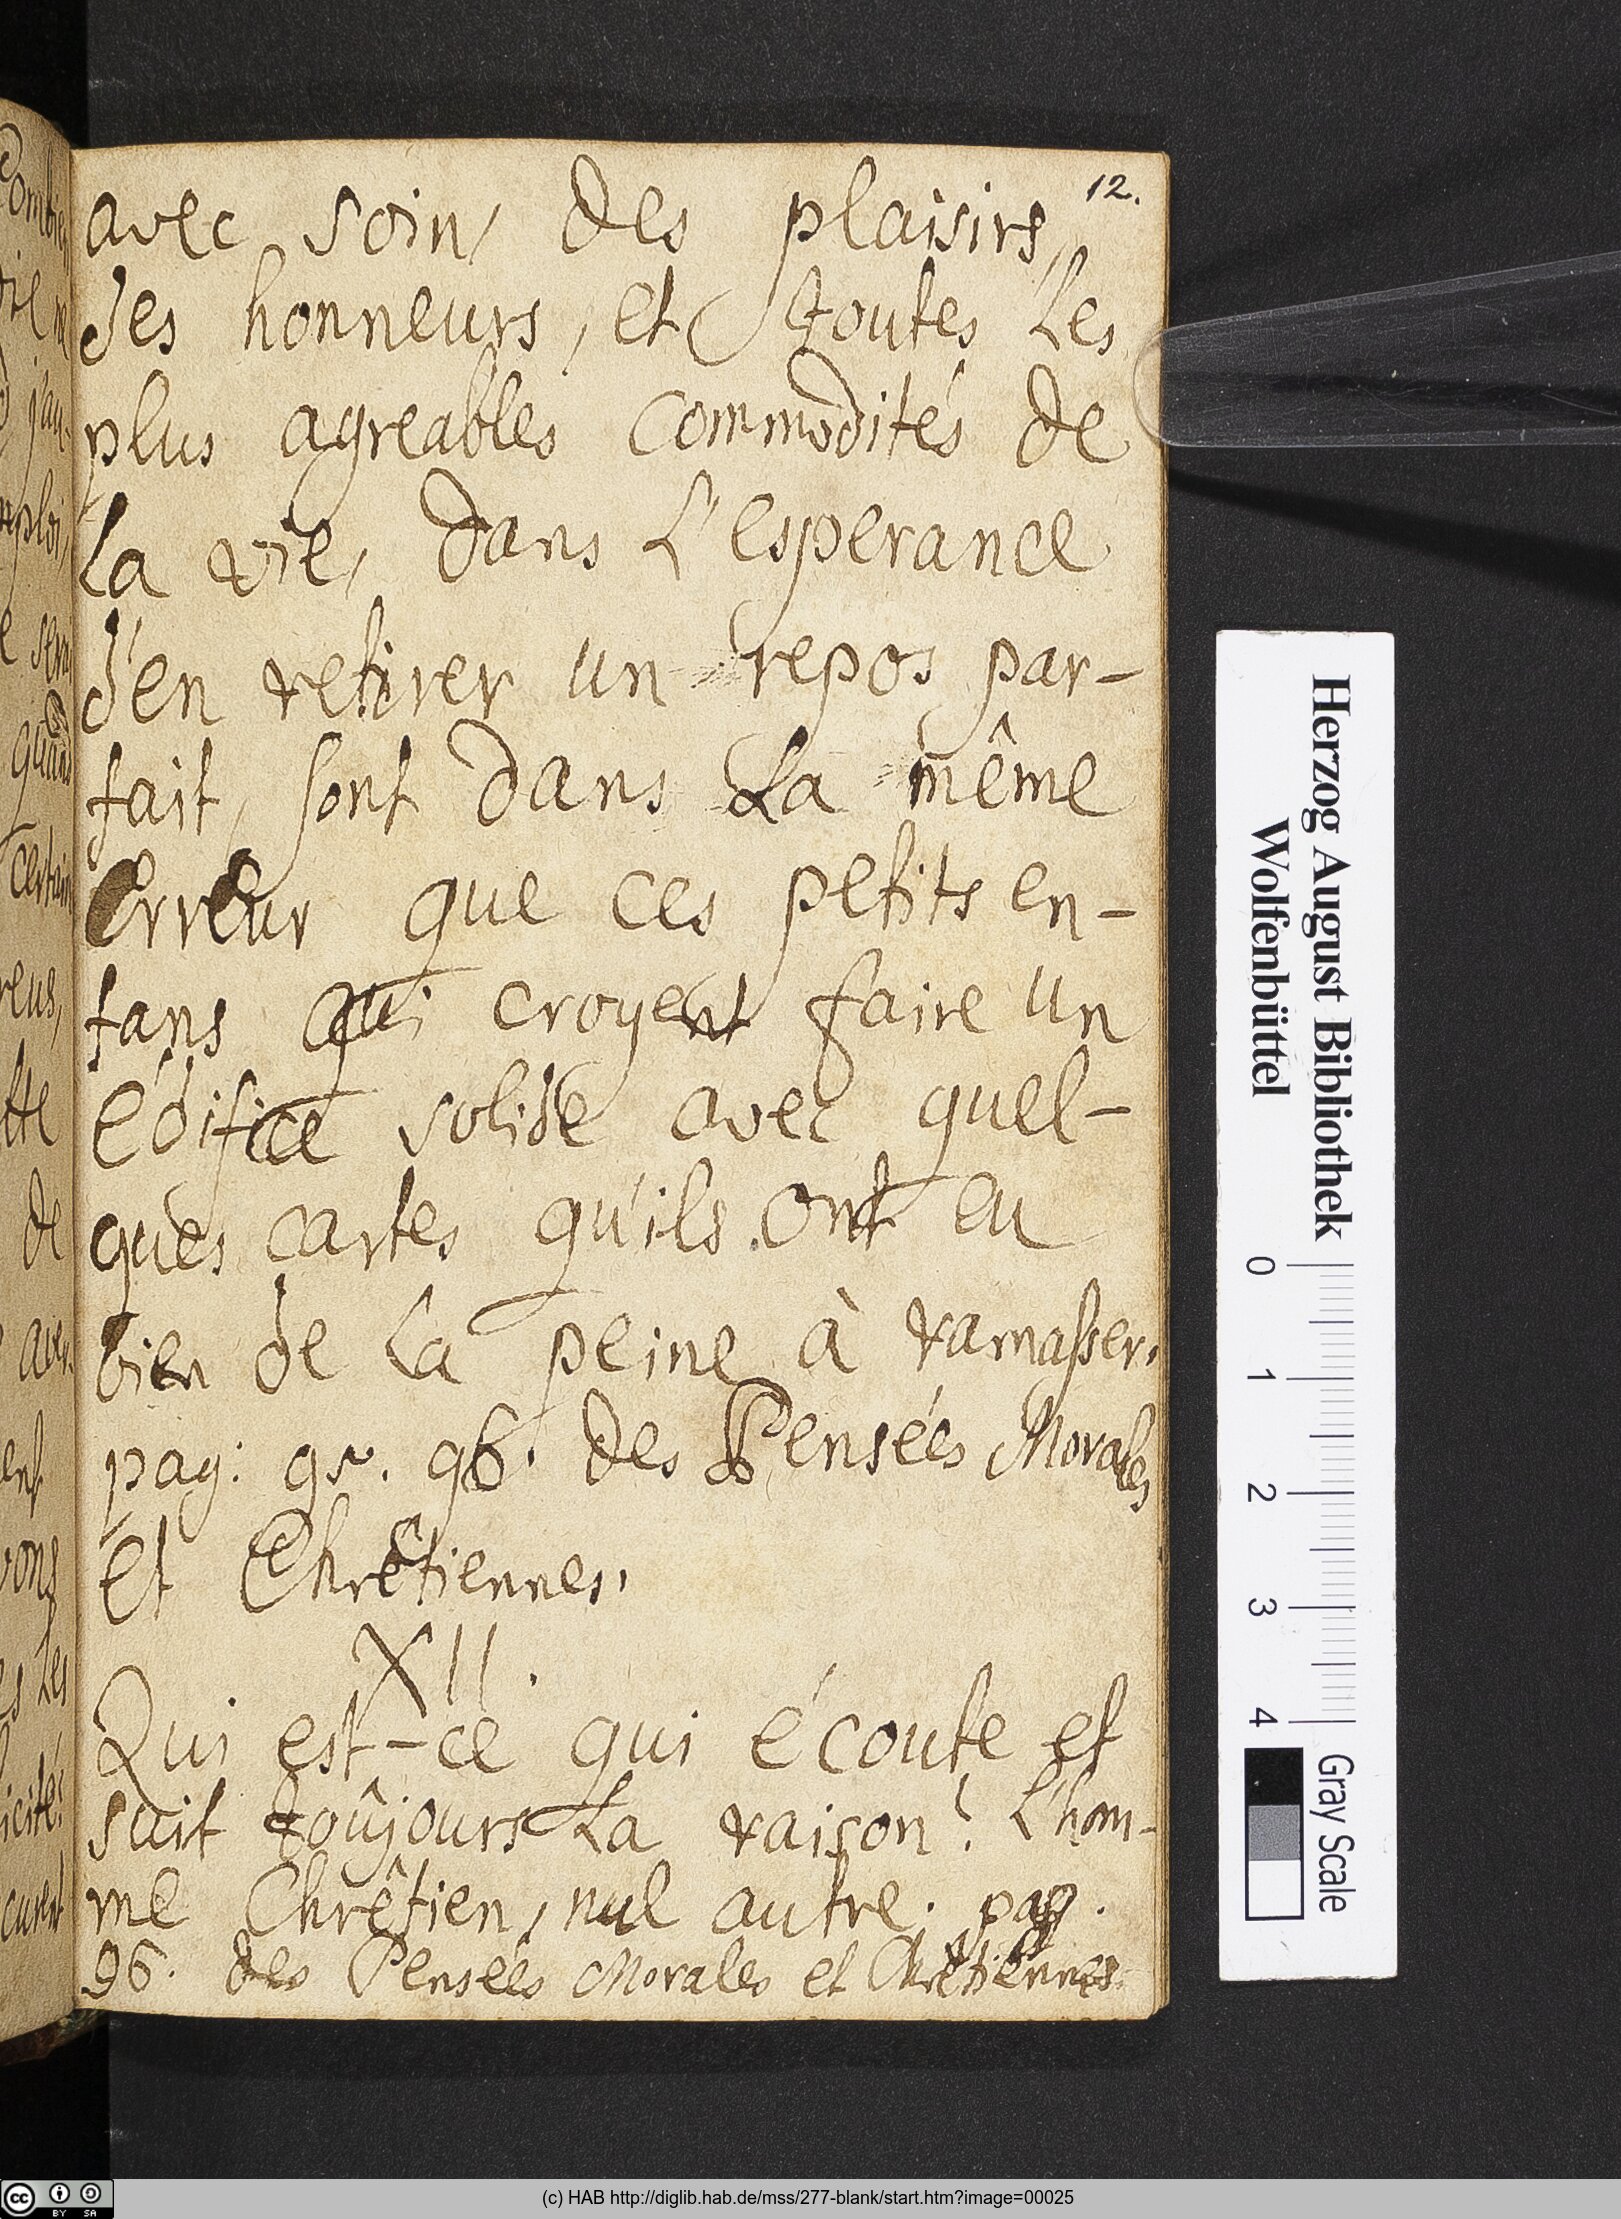 12.
avec soin, des plaisirs,
des honneurs, et toutes les
plus agreables commodités de
la vie, dans l'esperance
d'en retirer un repos par-
fait, sont dans la même
erreur que ces petits en-
fans qui croyent faire un
édifice solide avec quel-
ques cartes qu'ils ont eu
bien de la peine à ramasser.
pag: 95. 96. des Pensées Morales
et Chrêtiennes.
XII.
Qui est-ce qui écoute et
suit toûjours la raison? L'hom-
me Chrêtien, nul autre. pag.
96. des Pensées Morales et Chrêtiennes.
Herzog August Bibliothek
Wolfenbüttel
0 1 2 3 4
Gray Scale
cc BY SA
(c) HAB http://diglib.hab.de/mss/277-blank/start.htm?image=00025